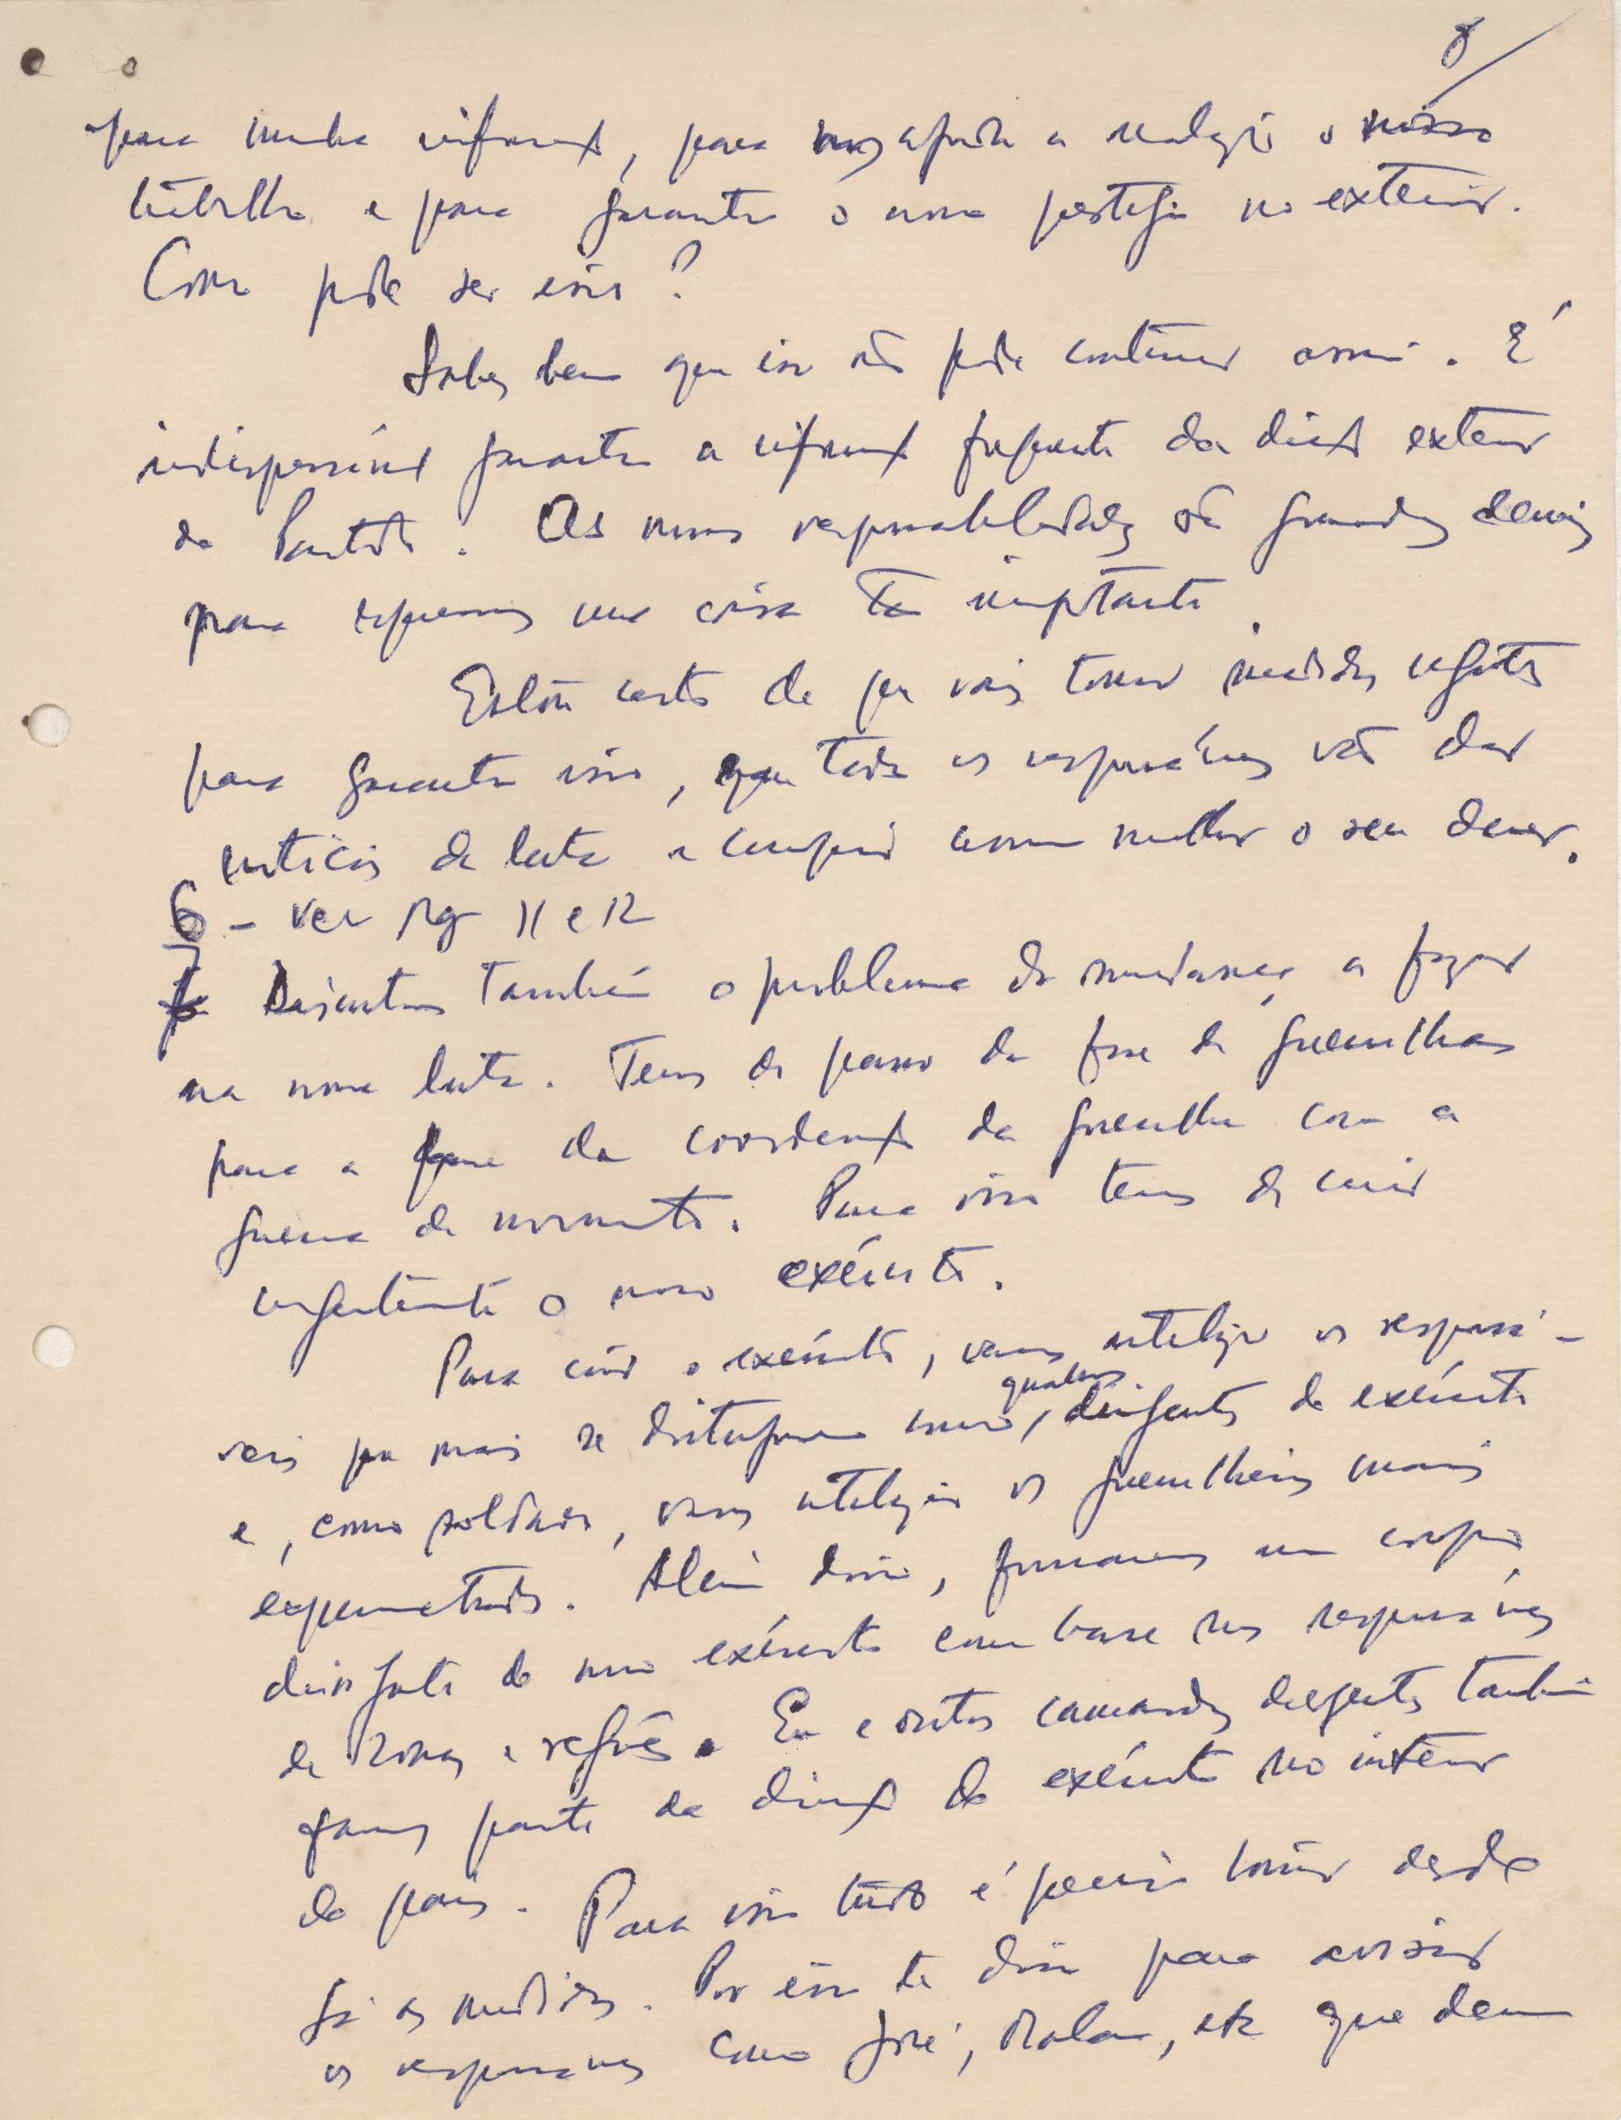 8
para minha informação, para nos ajudar a realizar o nosso
trabalho e para garantir o nosso prestígio no exterior.
Como pode ser isso?
Sabes bem que isso não pode continuar assim. É
indispensável garantir a informação frequente da direcção exterior
do Partido. As nossas responsabilidades são grandes demais
para esquecermos uma coisa tão importante.
Estou certo de que vais tomar medidas urgentes
para garantir isso, que todos os responsáveis vão dar
notícias da luta e cumprir assim melhor o seu dever.
6 - ver pag 11 e 12
7 Discutimos também o problema da mudança a fazer
na nossa luta. Temos de passar da fase de guerrilhas
para a fase da coordenação da guerrilha com a
guerra de movimento. Para isso temos de criar
urgentemente o nosso exército.
Para criar o exército, vamos utilizar os responsá-
veis que mais se distinguiram como quadros dirigentes do exército
e, como soldados, vamos utilizar os guerrilheiros mais
experimentados. Além disso, formaremos um corpo
dirigente do nosso exército com base nos responsáveis
de zonas e regiões. Eu e outros camaradas dirigentes também
faremos parte da direcção do exército no interior
do país. Para isso tudo é preciso tomar desde
já as medidas. Por isso te disse para avisar
os responsáveis como José, , etc que devem